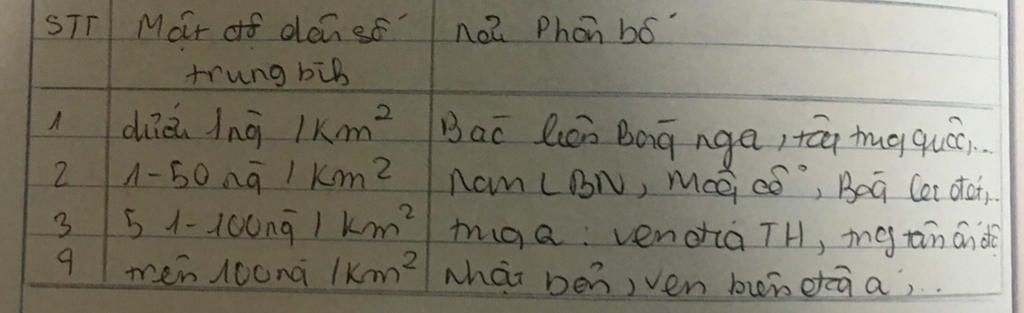 STT Mật độ dân số trung bìh Nơi Phân bố
1 dưới 1ng /Km² Bắc liên Bang nga, tây trung quốc,...
2 1-50 ng / Km² Nam LBN, Mông cổ, Bang
3 51-100ng / km² trung a: ven TH, ấn độ
4 trên 100ng /km² Nhật bản, ven biển đông a,..